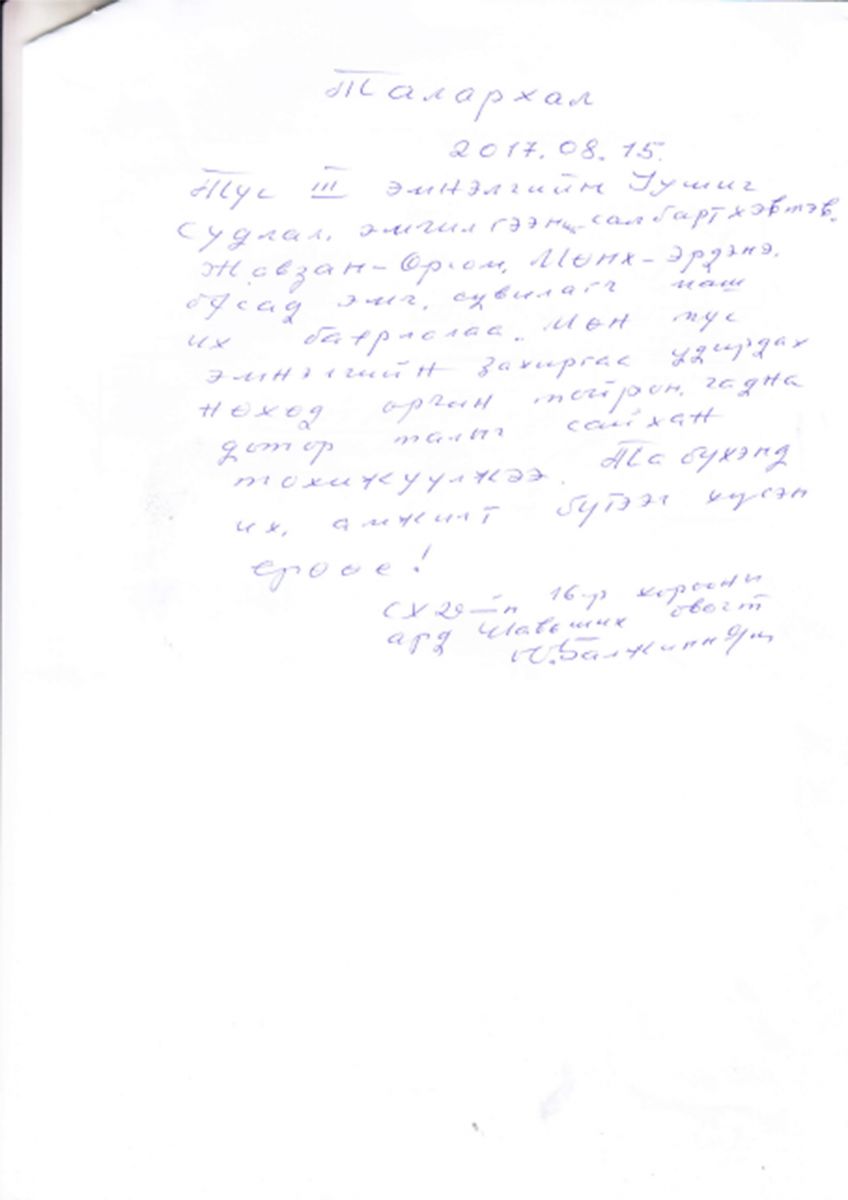 Талархал
2017.08.15.
Тус III эмнэлгийн Уушиг
судлал, эмчилгээний салбарт хэвтэв.
Жавзан-Оргом, Мөнх-Эрдэнэ,
бусад эмч, сувилагч маш
их баярлалаа. Мөн тус
эмнэлгийн захиргаа удирдах
нөхөд орчин тойрон, гадна
дотор талыг сайхан
тохижуулжээ. Та бүхэнд
их, амжилт бүтээл хүсэн
ерөөе!
СХД-ийн 16-р хорооны
ард овогт